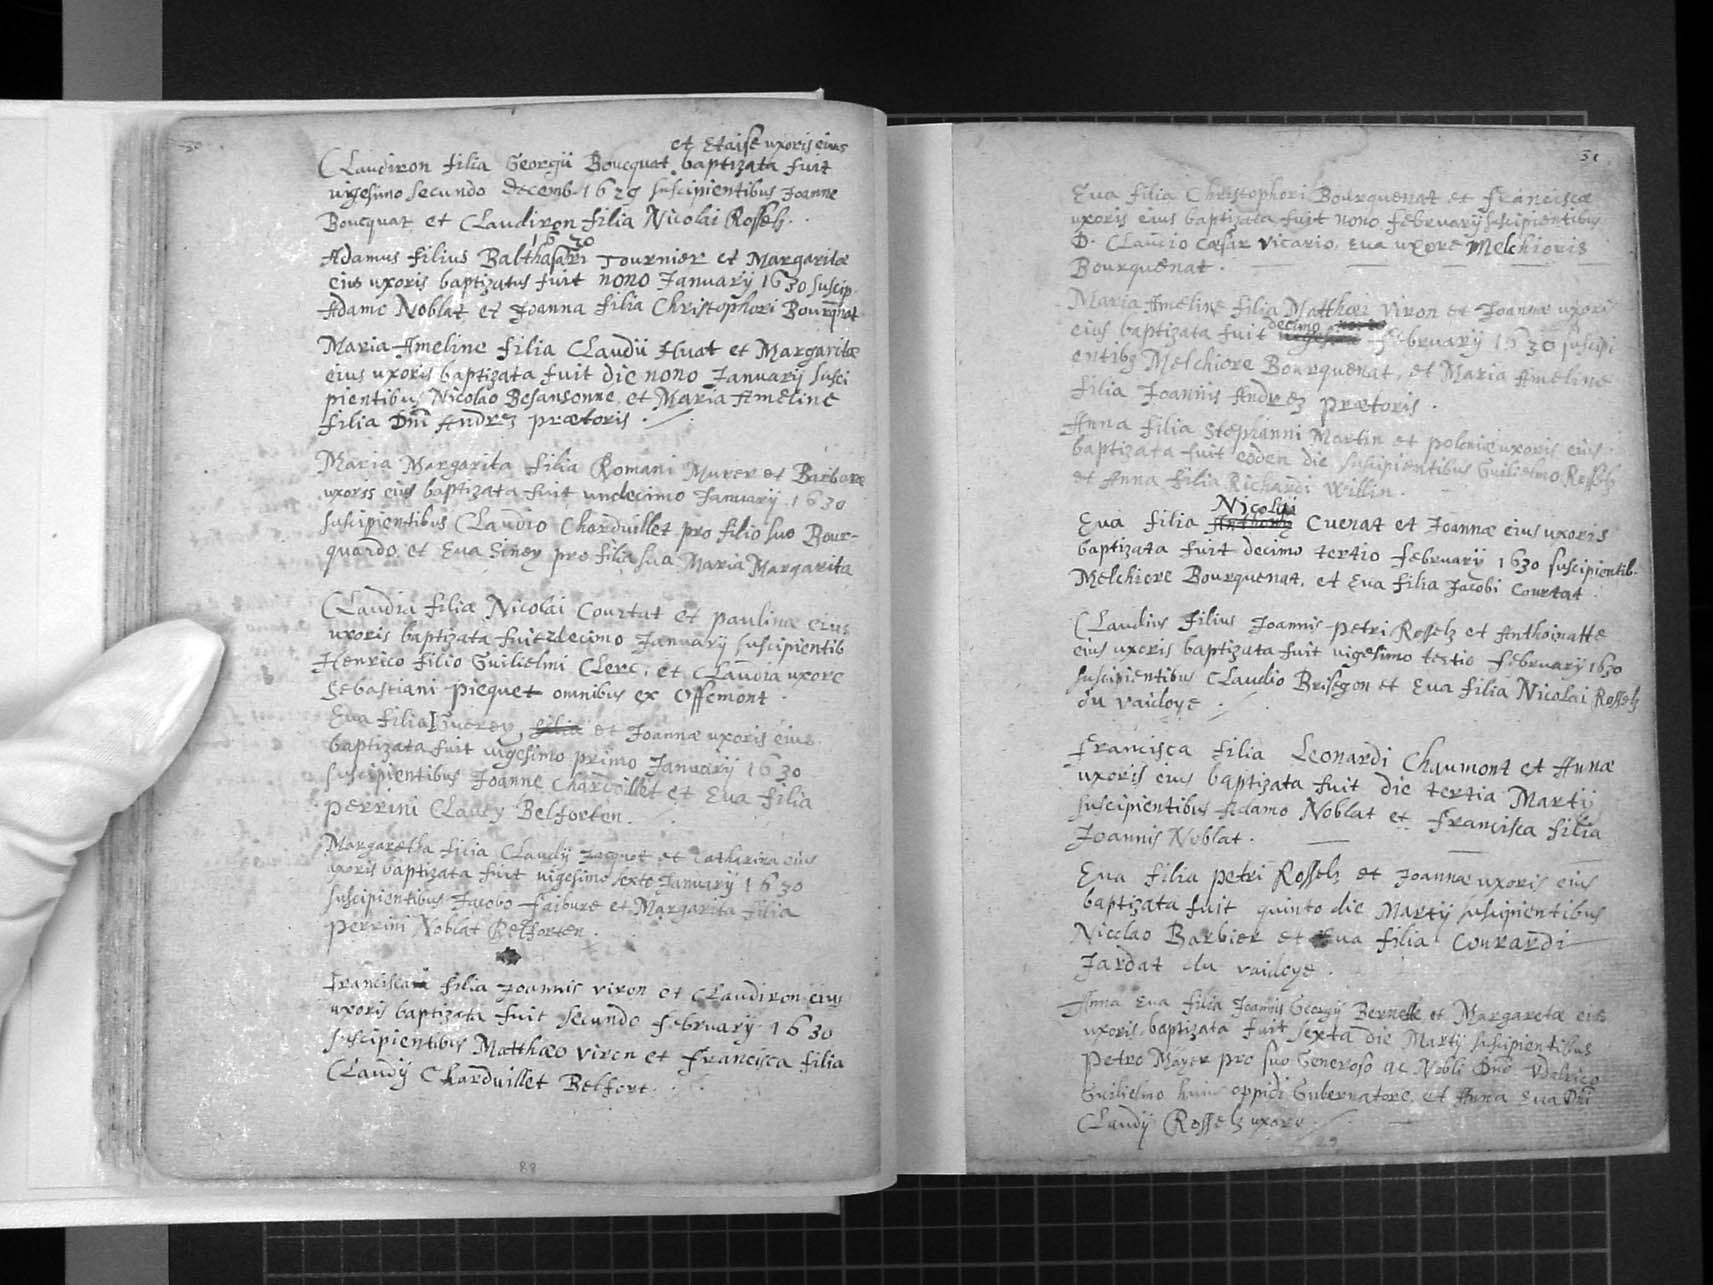 et Etaise uxoris eius
Claudiron filia Georgii Boucquat baptizata fuit
vigesimo secundo decemb 1629 suscipientibus Joanne
Boucquat et Claudiron filia Nicolai Rosselz.
1630
Adamus filius Balthasari Tournier et Margaritæ
eius uxoris baptizatus fuit nono January 1630 suscip.
Adamo Noblat et Joanna filia Christophori Bourqnat
Maria Ameline filia Claudii Huat et Margaritæ
eius uxoris baptizata fuit die nono January susci
pientibus Nicolao Besansonne, et Maria Ameline
filia Dni Andrez prætoris.
Maria Margarita filia Romani Murer et Barbaræ
uxoris eius baptizata fuit undecimo January 1630
suscipientibus Claudio Charduillet pro filio suo Bour-
quardo, et Eva Siney pro filia sua Maria Margarita
Claudia filia Nicolai Courtat et paulinæ eius
uxoris baptizata fuit decimo January suscipientib
Henrico filio Guilielmi Clerc, et Claudia uxore
Sebastiani piequet omnibus ex Offemont.
Eva filia Guerey, filia et Joannæ uxoris eius
baptizata fuit vigesimo primo January 1630
suscipientibus Joanne Chardoillet et Eva filia
perrini Claucy Belforten.
Margaretha filia Claudy Jacquot et Catharina eius
uxoris baptizata fuit vigesimo sexto January 1630
suscipientibus Jacobo faibure et Margarita filia
perrini Noblat Belforten.
Francisca filia Joannis viron et Claudiron eius
uxoris baptizata fuit secundo february 1630
suscipientibus Matthæo viron et francisca filia
Claudy Charduillet Belfort.
88
31
Eva filia Christophori Bourquenat et franciscæ
uxoris eius baptizata fuit nono february suscipientibus
D. Claudio Cæsar vicario, eva uxore Melchioris
Bourquenat.
Maria Ameline filia Matthæi Viron et Joannæ uxoris
eius baptizata fuit decimo february 1630 suscipi
entibz Melchiore Bourquenat, et Maria Ameline
filia Joannis Andrez prætoris.
Anna filia Stephanni Martin et poloniæ uxoris eius
baptizata fuit eoden die suscipientibus Guilielmo Rosselz
et Anna filia Richardi Willin.
Nicolai
Eva filia Anthony Cuenat et Joannæ eius uxoris
baptizata fuit decimo tertio february 1630 suscipientib.
Melchiore Bourquenat, et Eva filia Jacobi Courtat.
Claudius filius Joannis petri Rosselz et Anthoinatte
eius uxoris baptizata fuit vigesimo tertio february 1630
suscipientibus Claudio Brisegon et Eva filia Nicolai Rosselz
du vaidoye.
francisca filia Leonardi Chaumont et Annæ
uxoris eius baptizata fuit die tertia Marty
suscipientibus Adamo Noblat et francisca filia
Joannis Noblat.
Eva filia petri Rosselz et Joannæ uxoris eius
baptizata fuit quinto die Marty suscipientibus
Nicolao Barbier et Eva filia Conrardi
Jardat du vaidoye.
Anna Eva filia Joannis Georgy Bernelle et Margaretæ eius
uxoris baptizata fuit sexta die Marty suscipientibus
petro Mayer pro suo Generoso ac Nobli Dno Vdalrico
Guilielmo huius oppidi Gubernatore, et Anna Eva Dni
Claudy Rosselz uxore